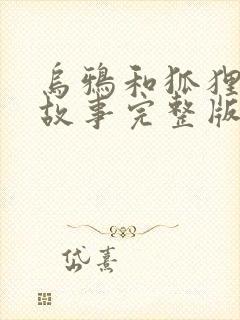 乌鸦和狐狸
故事完整版
岱熹